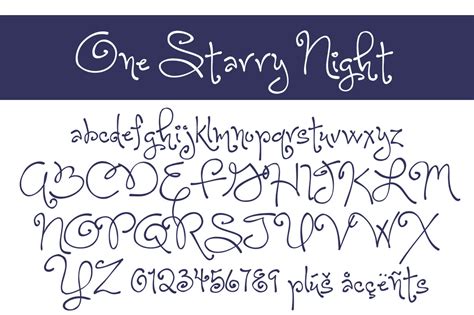 One Starry Night
abcdefghijklmnopqrstuvwxyz
ABCDEFGHIJKLM
NOPQRSTUVWX
YZ 0123456789 plúš åccëñts